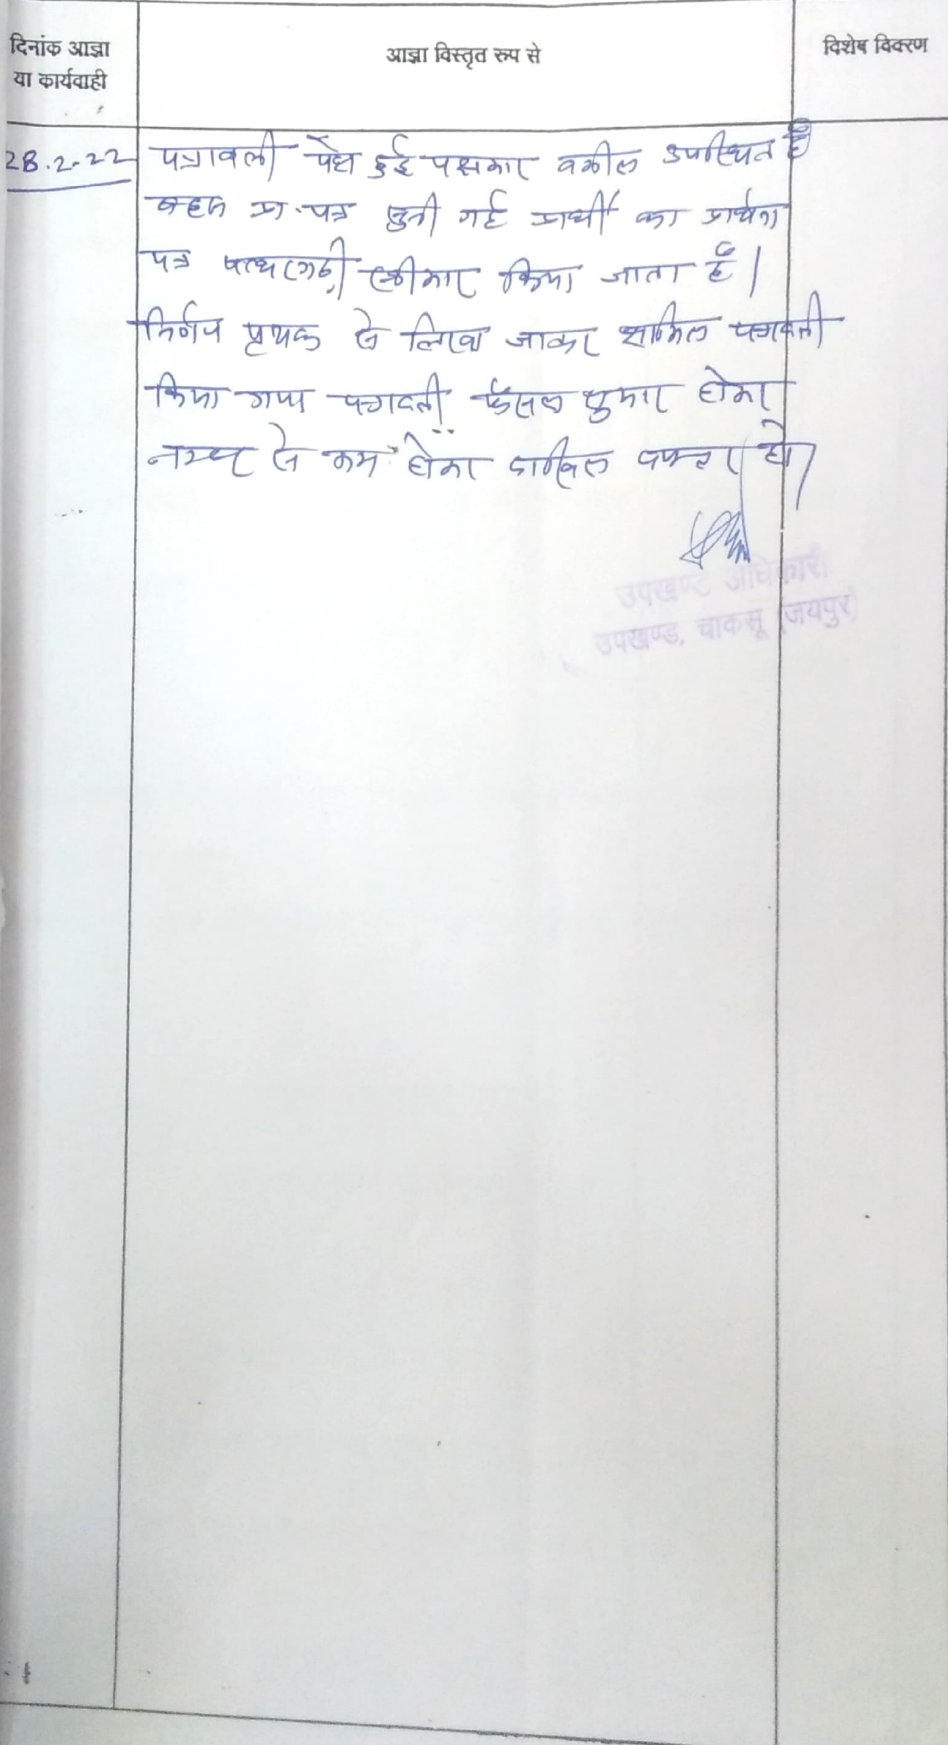 दिनांक आज्ञा
या कार्यवाही
आज्ञा विस्तृत रूप से
विशेष विवरण
28.2.22
पत्रावली पेश हुई पक्षकार वकील उपस्थित है
बहस प्रा. पत्र सुनी गई प्रार्थी का प्रार्थना
पत्र पत्थरगढ़ी स्वीकार किया जाता है।
निर्णय पृथक से लिखा जाकर शामिल पत्रावली
किया गया पत्रावली फैसल शुमार होकर
नम्बर से कम होकर दाखिल दफ्तर हो।
उपखण्ड अधिकारी
उपखण्ड, चाकसू (जयपुर)